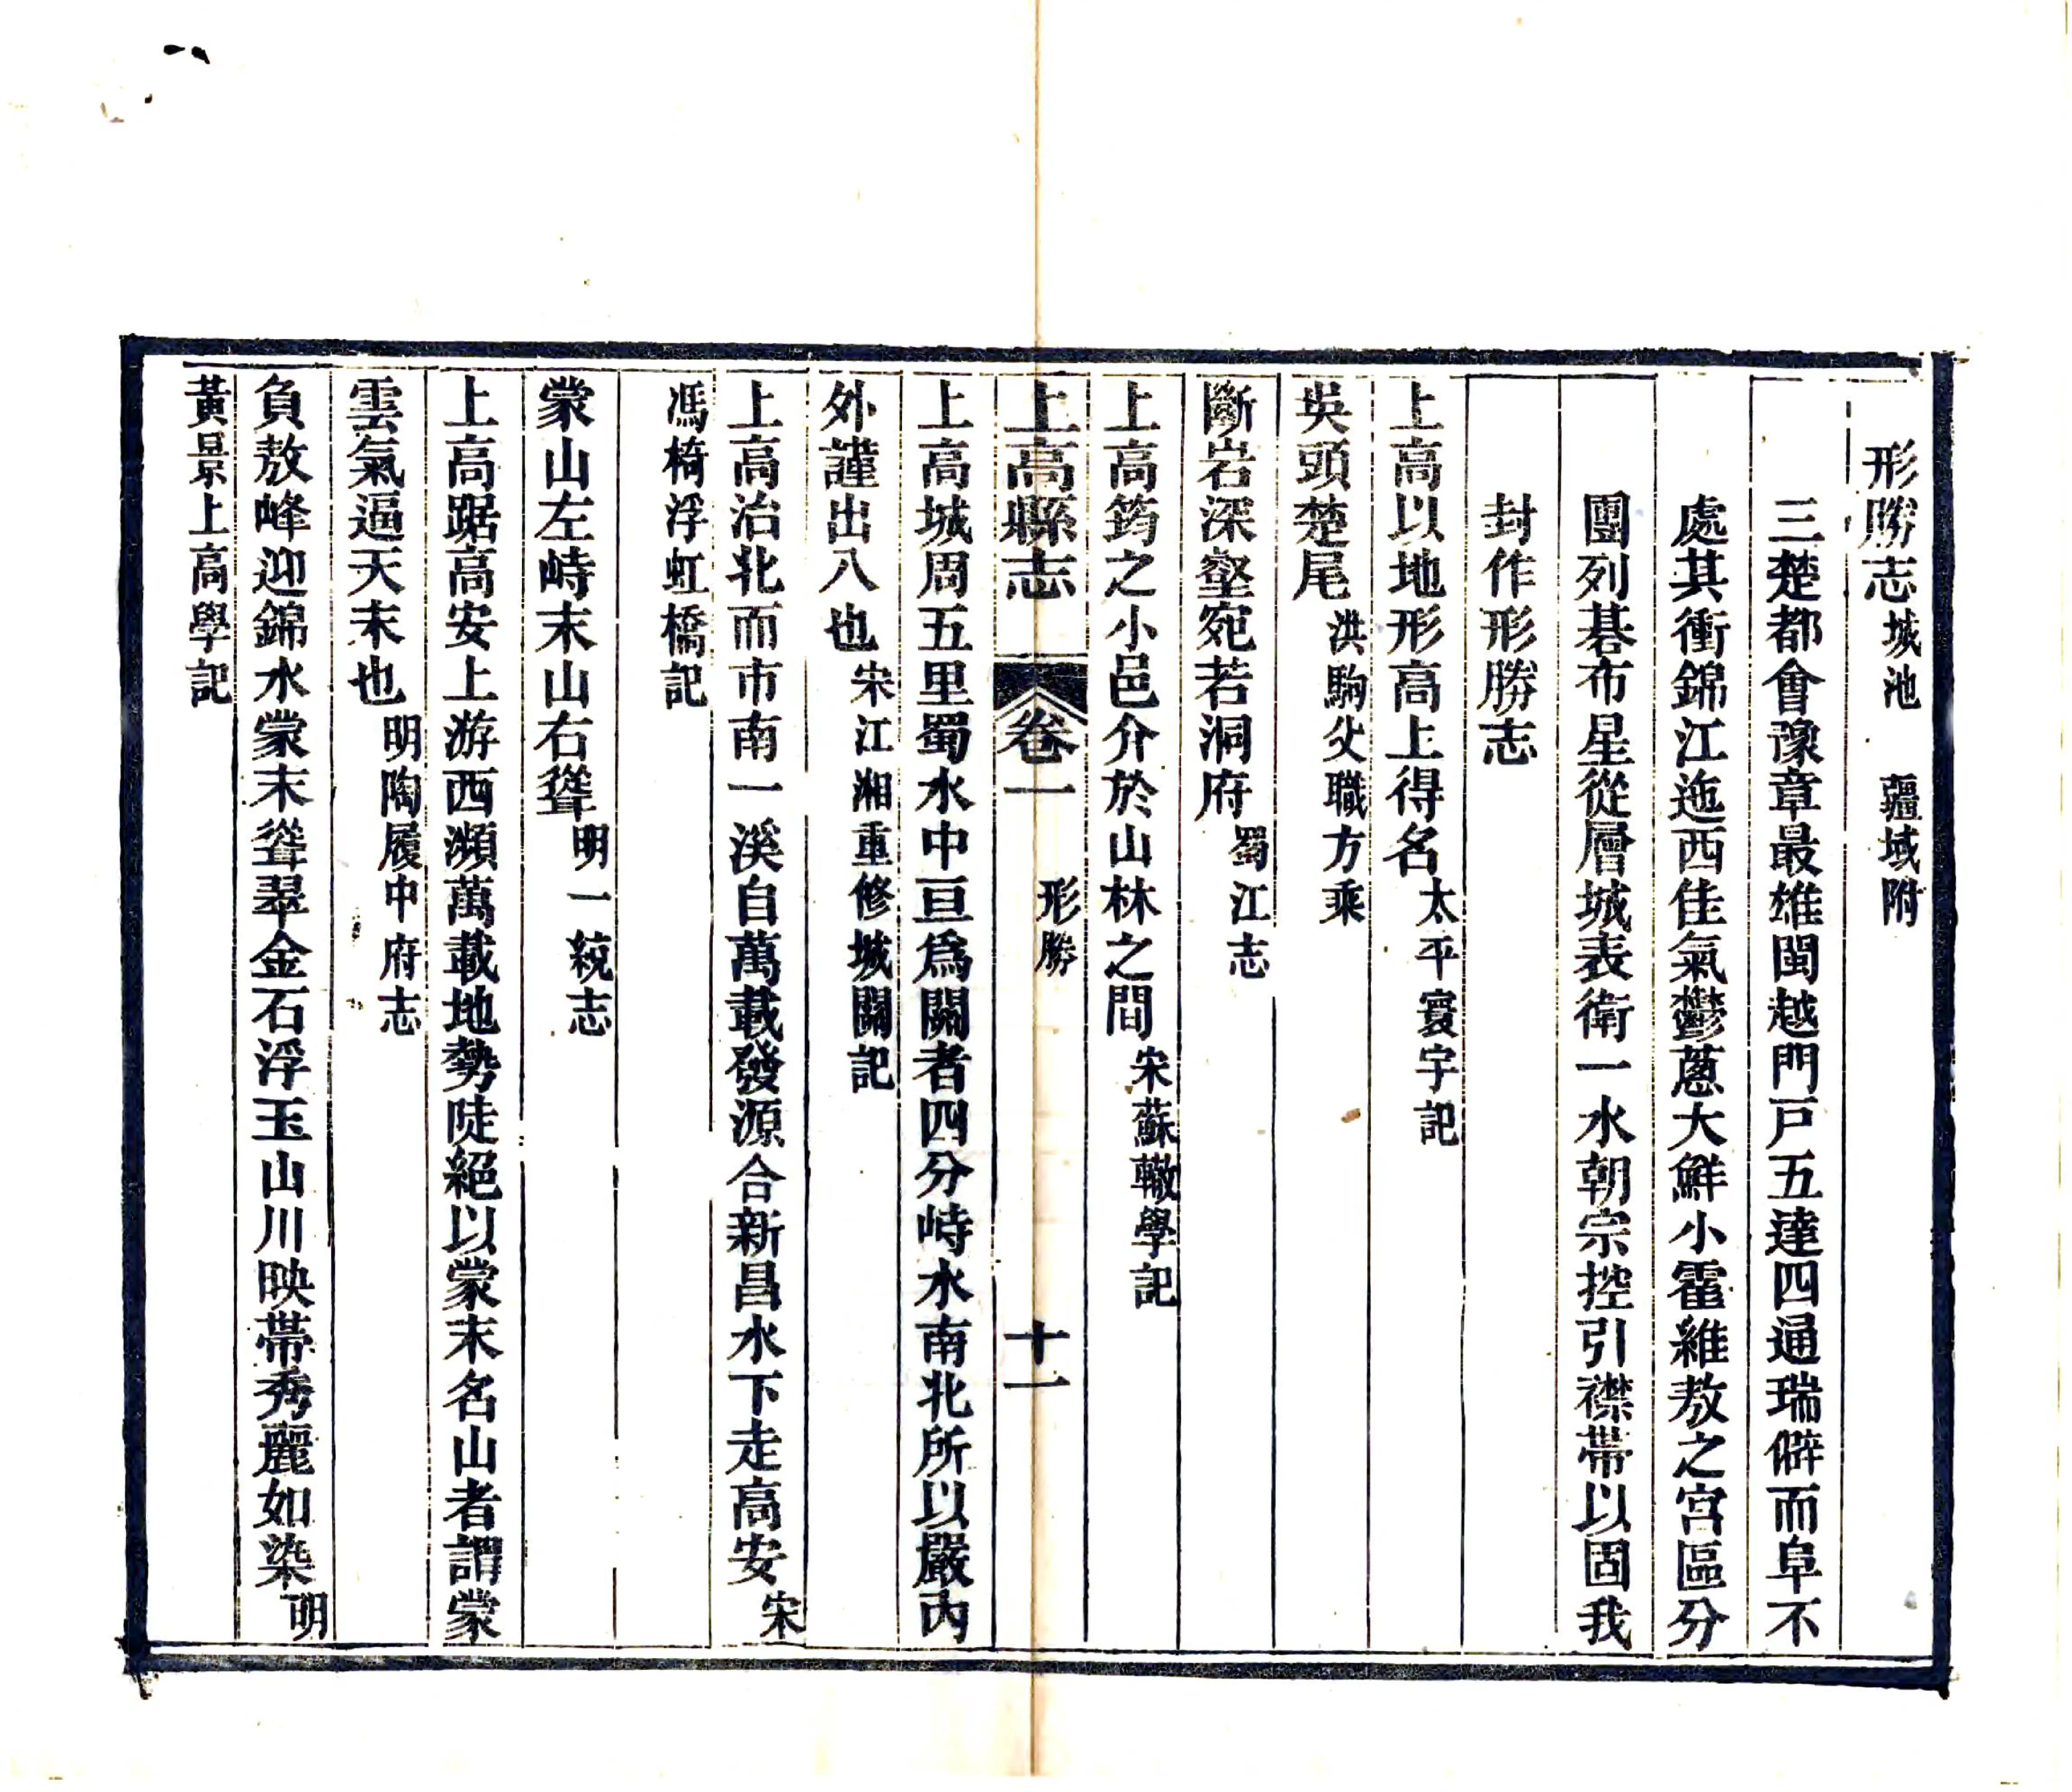 形勝志 城池 疆域附
三楚都會豫章最雄閩越門戸五達四通瑞僻而阜不
處其衝錦江迤西佳氣鬱蔥大鮮小霍維敖之宮區分
團列碁布星從層城表衛一水朝宗控引襟帶以固我
封作形勝志
上高以地形高上得名太平寰宇記
吳頭楚尾洪駒父職方乘
斷岩深壑宛若洞府蜀江志
上高筠之小邑介於山林之間宋蘇轍學記
上高縣志 卷一 形勝 十一
上高城周五里蜀水中亘爲關者四分峙水南北所以嚴内
外謹出入也宋江湘重修城關記
上高治北而市南一溪自萬載發源合新昌水下走高安宋
馮椅浮虹橋記
蒙山左峙末山右聳明一統志
上高踞高安上游西瀕萬載地勢陡絕以蒙末名山者謂蒙
雲氣逼天末也明陶履中府志
負敖峰迎錦水蒙末聳翠金石浮玉山川映帶秀麗如染明
黃景上高學記